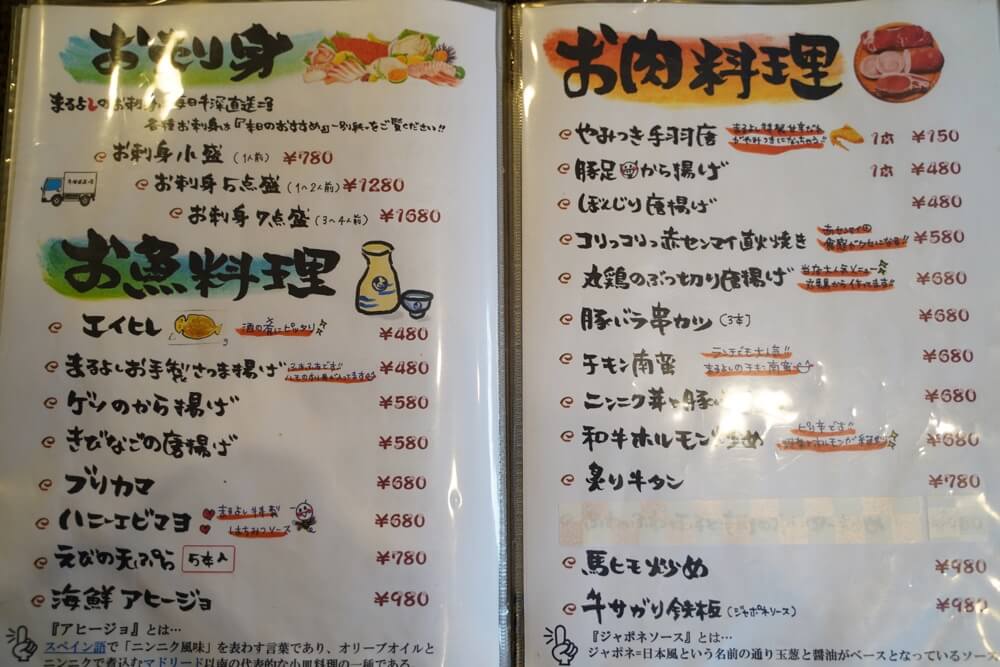 お刺り身
まるよしのお刺身は毎日牛深直送
各種お刺身は『本日のおすすめ』別紙をご覧ください!!
お刺身小盛(1人前) ¥780
お刺身5点盛(1~2人前) ¥1280
お刺身7点盛(3~4人前) ¥1680
お魚料理
エイヒレ 酒の肴にピッタリ ¥480
まるよしお手製さつま揚げ ¥480
ゲソのから揚げ ¥580
きびなごの唐揚げ ¥580
ブリカマ ¥680
ハニーエビマヨ まるよし特製 はちみつソース ¥680
えびの天ぷら 5本入 ¥780
海鮮アヒージョ ¥980
『アヒージョ』とは…
スペイン語で「ニンニク風味」を表わす言葉であり、オリーブオイルと
ニンニクで煮込むマドリード以南の代表的な小皿料理の一種である。
お肉料理
やみつき手羽唐 1本 ¥150
豚足から揚げ 1本 ¥480
ぼんじり唐揚げ ¥480
コリっコリっ赤センマイ直火焼き ¥580
丸鶏のぶっ切り唐揚げ 当店大人気メニュー ¥680
豚バラ串カツ(3本) ¥680
チキン南蛮 ランチでも大人気!! まるよしのチキン南蛮 ¥680
ニンニク芽と豚 ¥680
和牛ホルモン炒め ピリ辛です!! ¥680
炙り牛タン ¥780
馬ヒモ炒め ¥980
牛サガリ鉄板(ジャポネソース) ¥980
『ジャポネソース』とは…
ジャポネ=日本風という名前の通り玉葱と醤油がベースとなっているソース